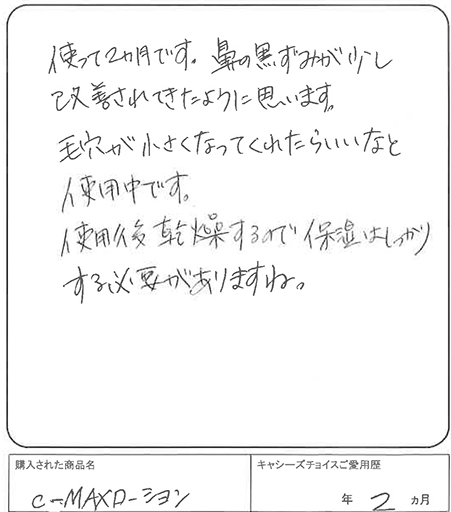 使って2ヵ月です。鼻の黒ずみが少し
改善されてきたように思います。
毛穴が小さくなってくれたらいいなと
使用中です。
使用後乾燥するので保湿はしっかり
する必要がありますね。
購入された商品名
C-MAXローション
キャシーズチョイスご愛用歴
年 2 ヵ月